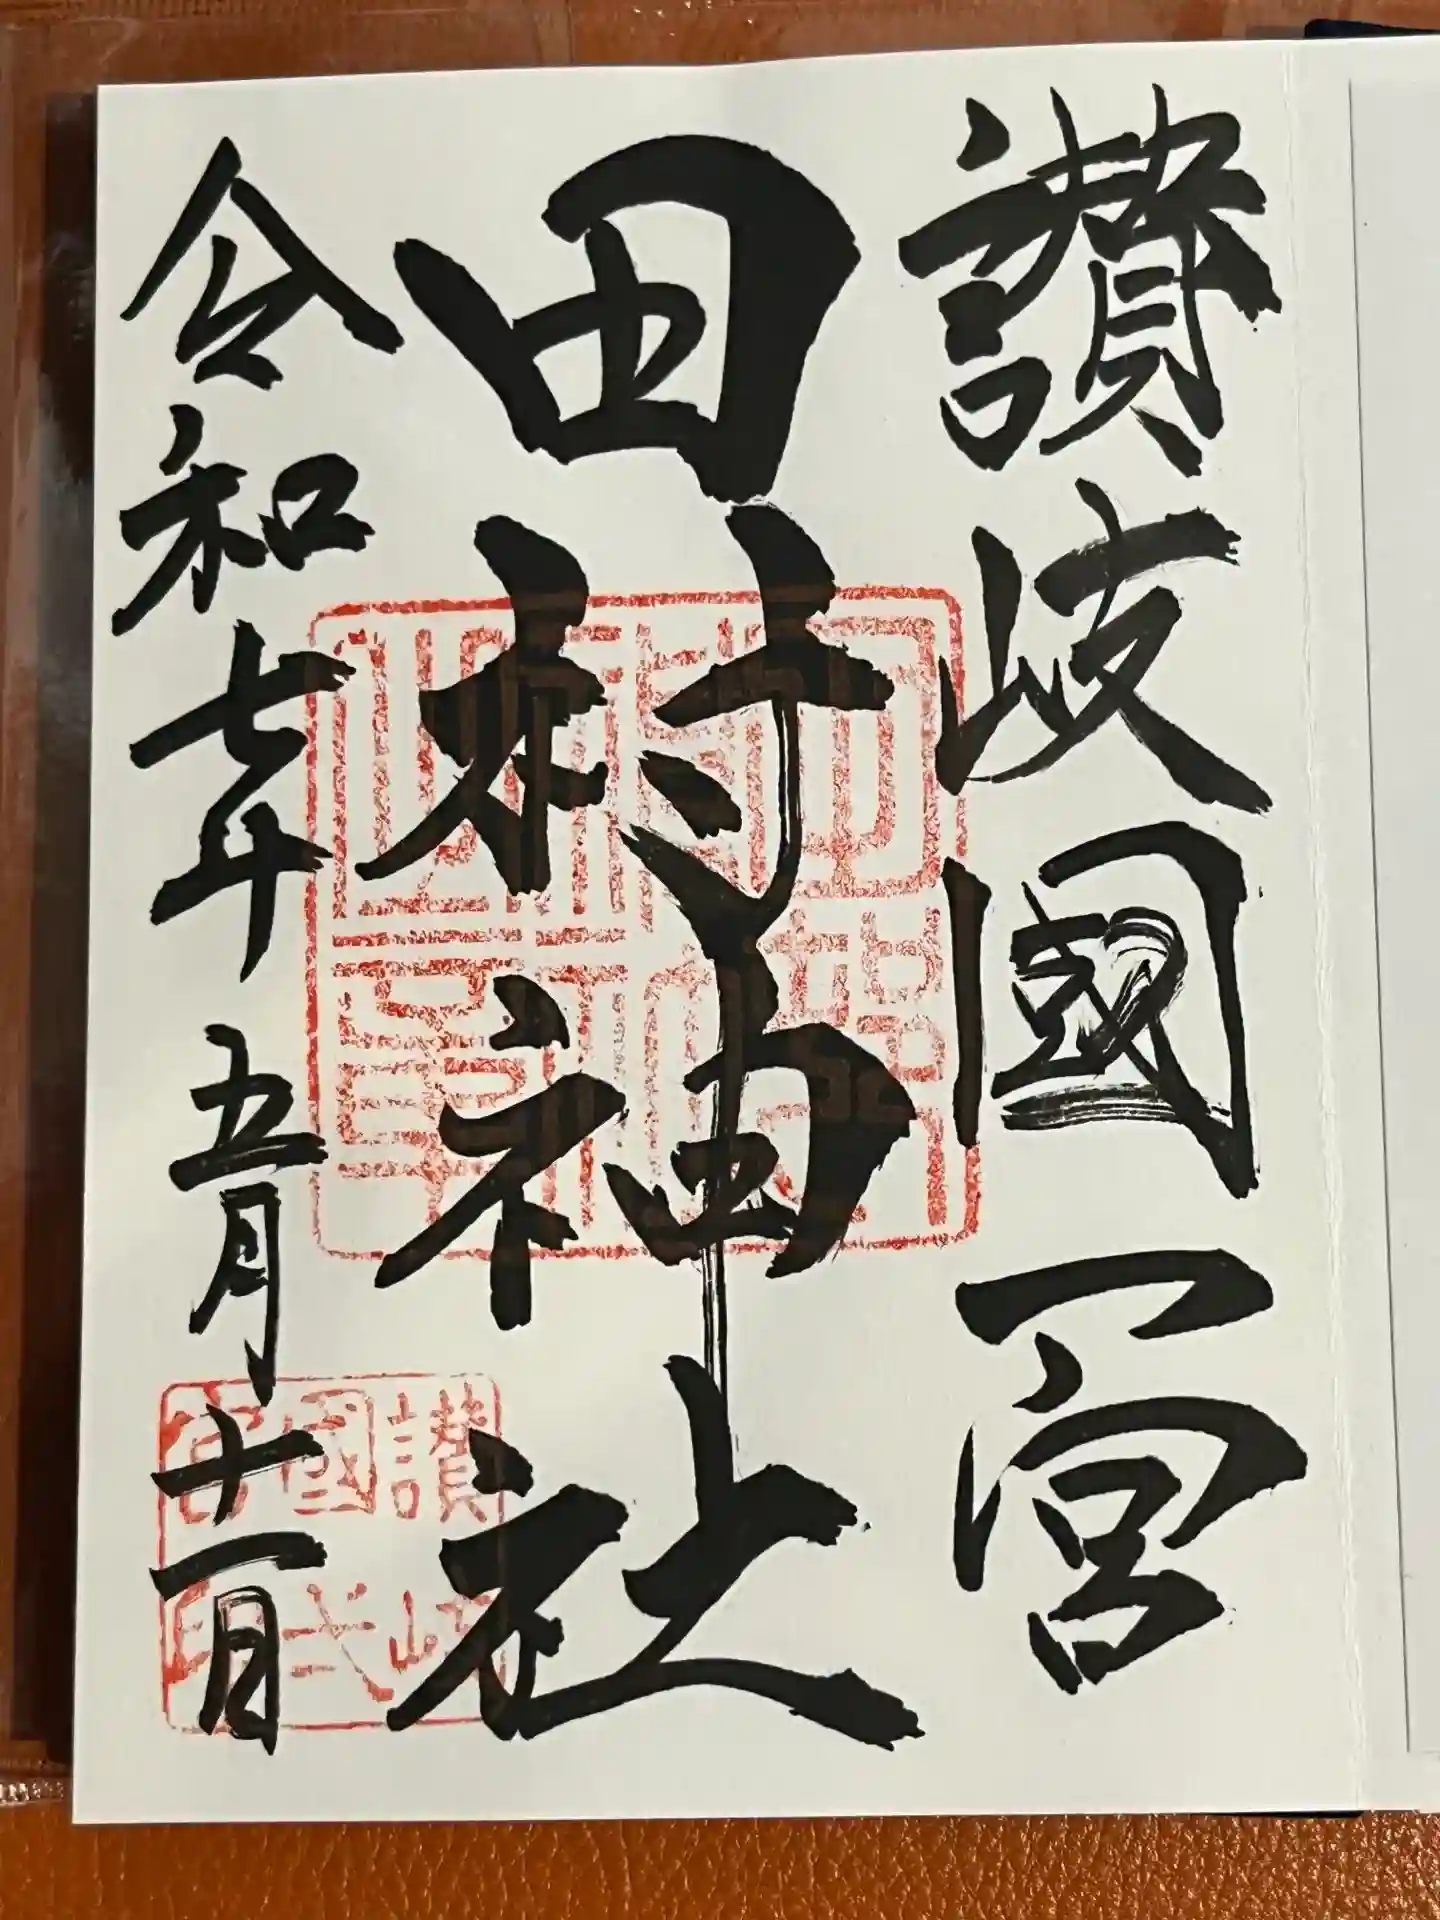 讃岐國一宮
田村神社
令和七年五月十一日
讃岐
國弌
宮印